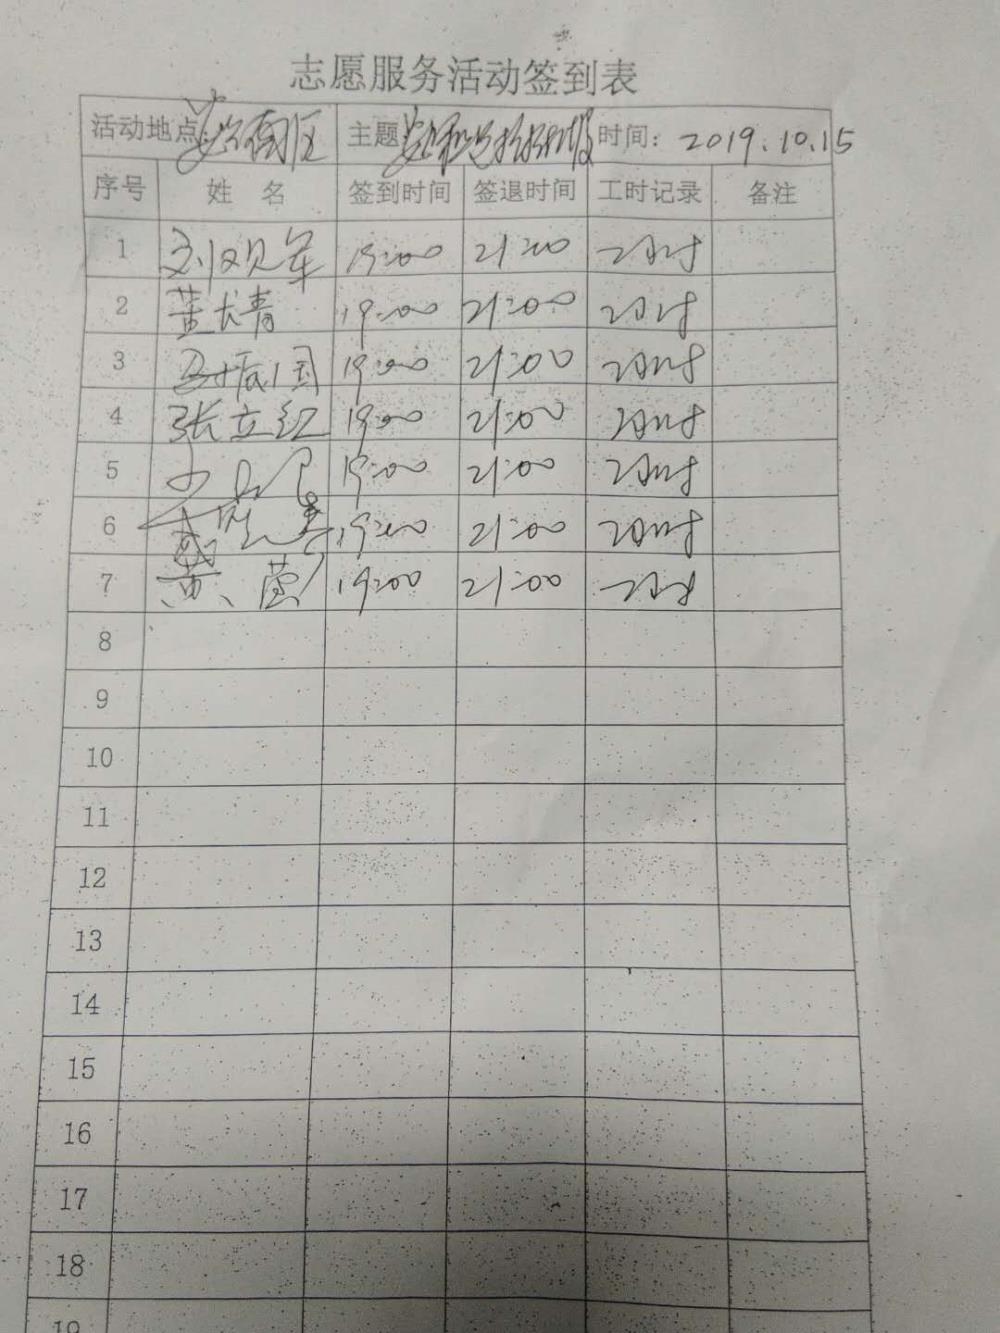 志愿服务活动签到表
活动地点 南区 主题 时间：2019.10.15
序号 姓 名 签到时间 签退时间 工时记录 备注
1 刘观军 19:00 21:00 2小时
2 董长青 19:00 21:00 2小时
3 国 19:00 21:00 2小时
4 张立红 19:00 21:00 2小时
5 19:00 21:00 2小时
6 19:00 21:00 2小时
7 黄莹 19:00 21:00 2小时
8
9
10
11
12
13
14
15
16
17
18
19